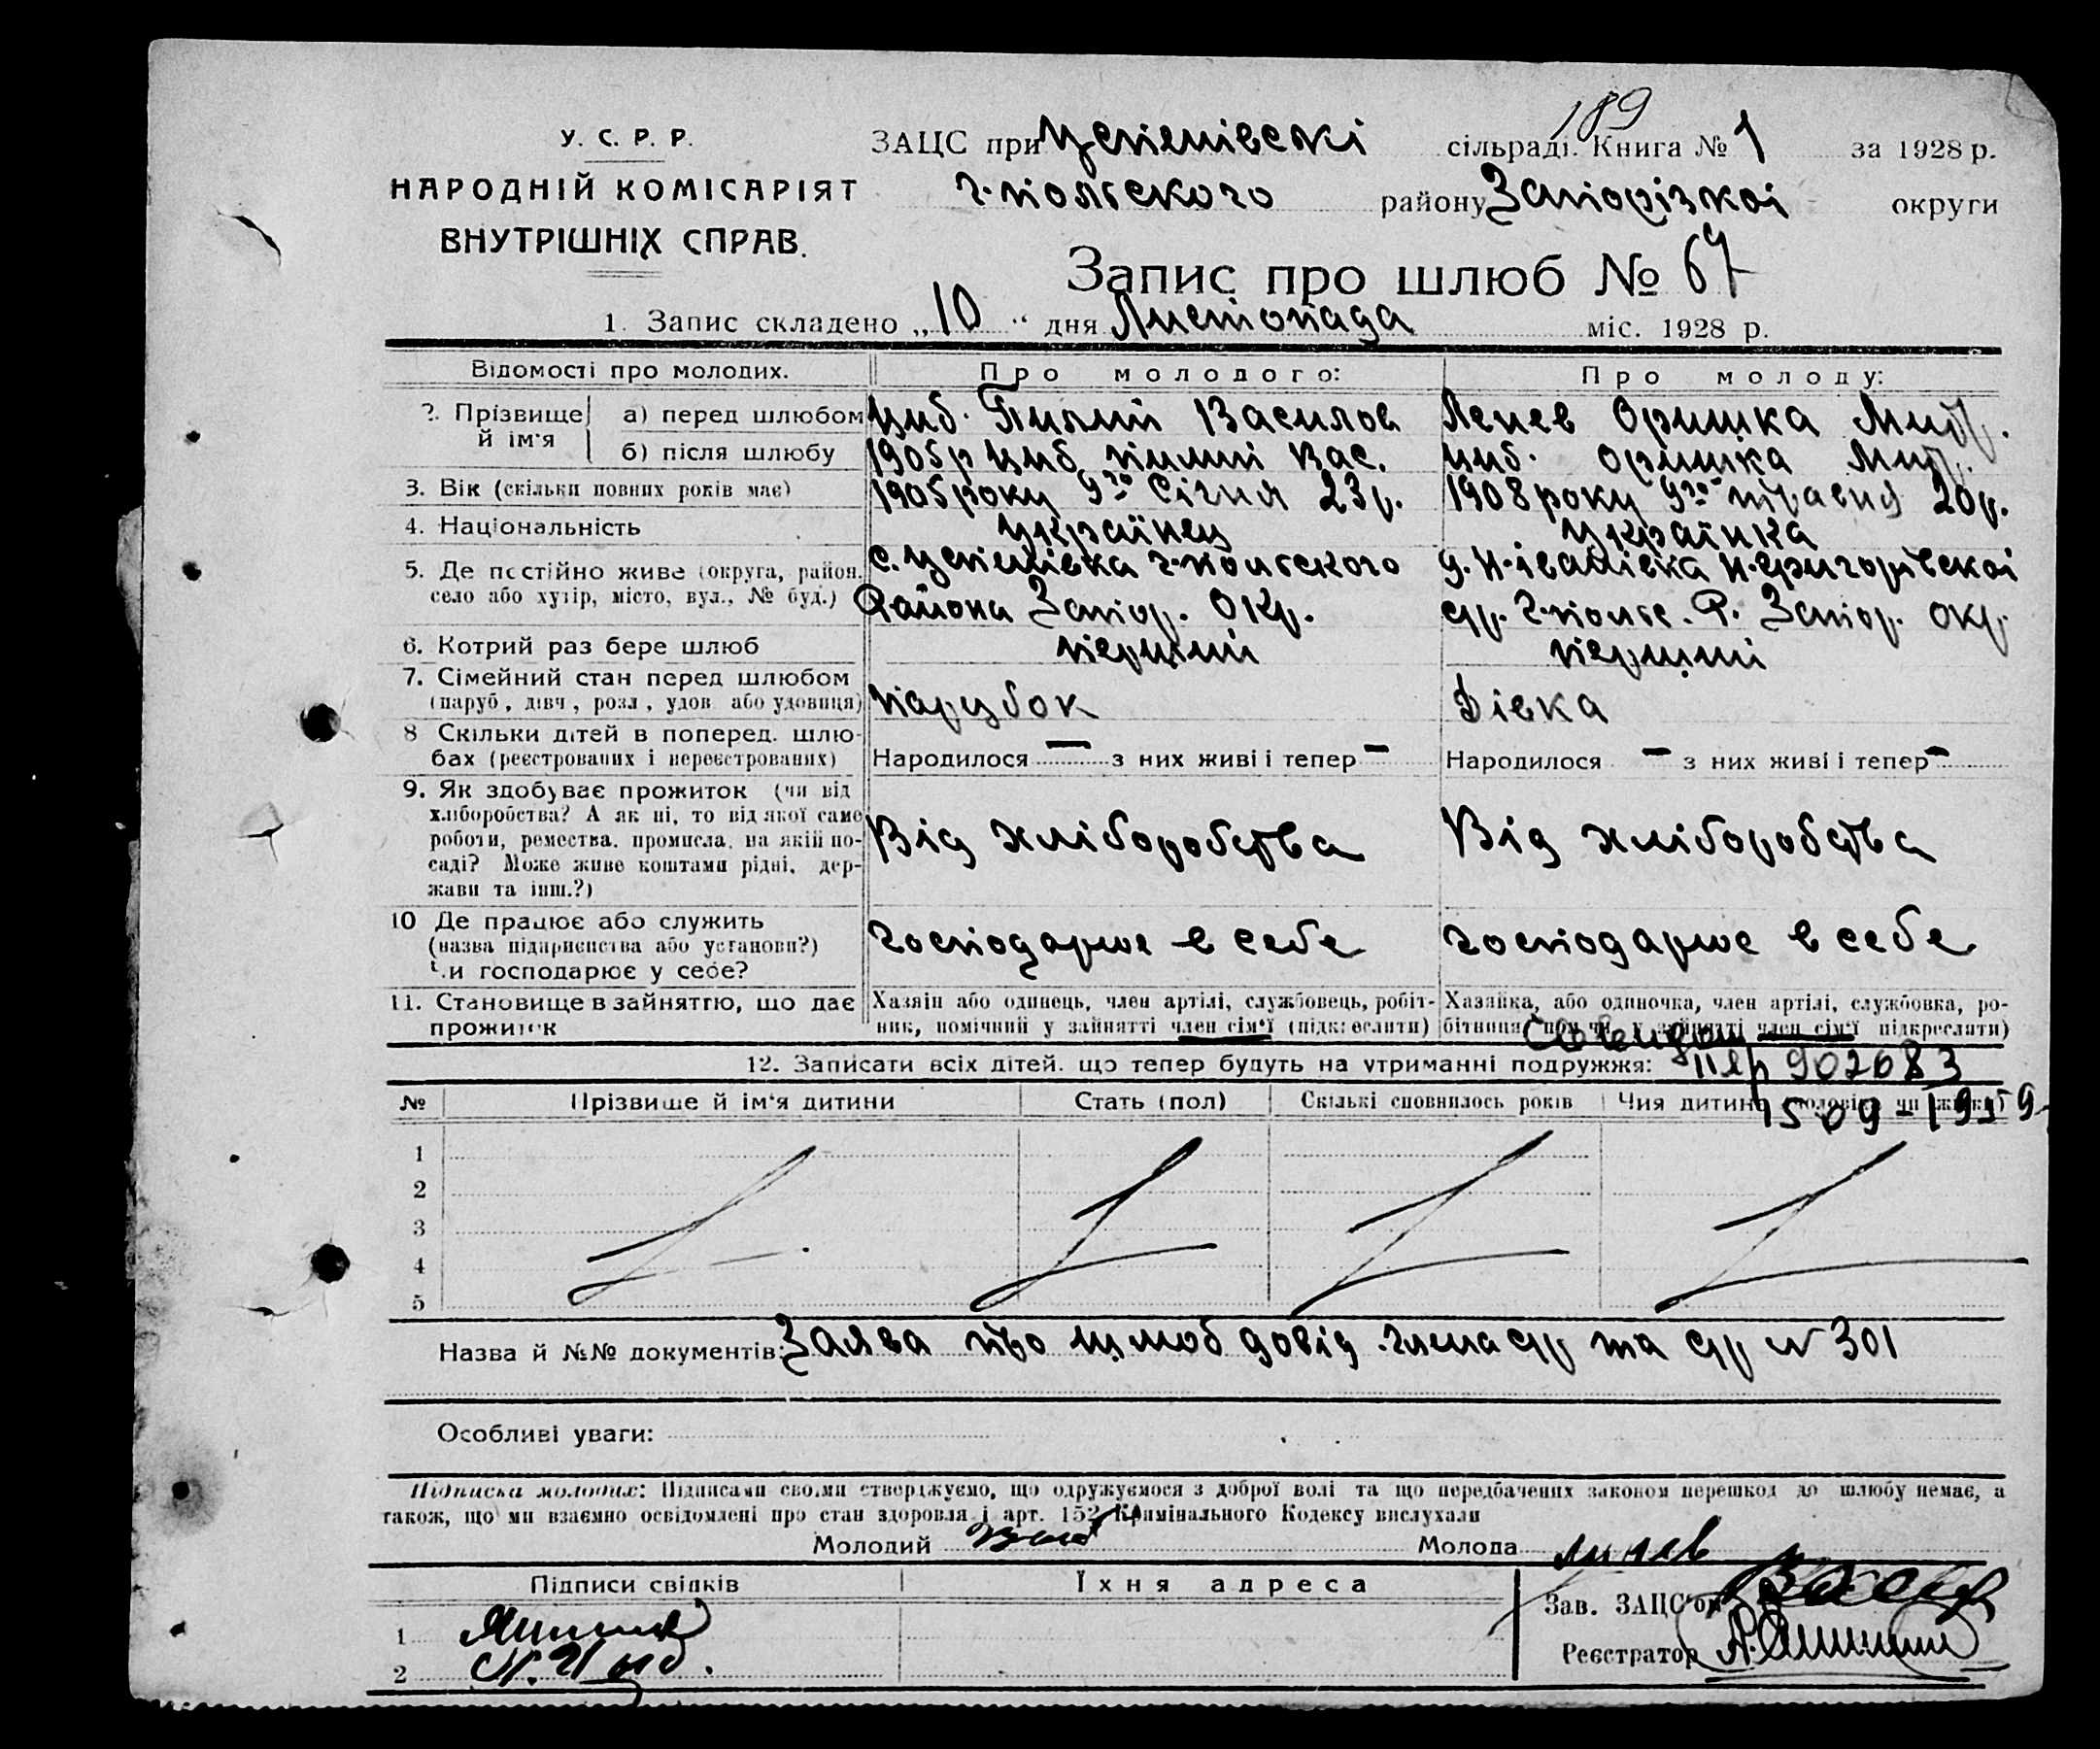 189
У. С. Р. Р.
НАРОДНІЙ КОМІСАРІЯТ
ВНУТРІШНІХ СПРАВ.
ЗАЦС при сільраді. Книга № 1 за 1928 р.
г.польского району Запорізкоі округи
Запис про шлюб № 67
1. Запис складено „10“ дня Листопада міс. 1928 р.
Відомості про молодих. Про молодого: Про молоду:
2. Прізвище й ім'я а) перед шлюбом Циб. Пилип Василов Оришка
б) після шлюбу 1905р Циб пилип Вас. Циб. Оришка
3. Вік (скільки повних років має) 1905 року 9го Січня 23р. 1908 року 9го травня 20р.
4. Національність українец українка
5. Де постійно живе (округа, район, село або хутір, місто, вул., № буд.) с. г.польского Района Запор. Окр. Н.іванівка Н.григорівскоі ср. г.польс. Р. Запор. окр
6. Котрий раз бере шлюб перший перший
7. Сімейний стан перед шлюбом (паруб, дівч, розл, удов. або удовиця) парубок Дівка
8 Скільки дітей в поперед. шлюбах (реєстрованих і нереєстрованих) Народилося — з них живі і тепер — Народилося — з них живі і тепер —
9. Як здобуває прожиток (чи від хліборобства? А як ні, то від якої саме роботи, ремества, промисла, на якій посаді? Може живе коштами рідні, держави та інш.?) Від хліборобства Від хліборобства
10 Де працює або служить (назва підприємства або установи?) Чи господарює у себе? господарює в себе господарює в себе
11. Становище в зайняттю, що дає прожиток Хазяїн або одинець, член артілі, службовець, робітник, помічний у зайнятті член сім'ї (підкреслити) Хазяйка, або одиночка, член артілі, службовка, робітниця у зайнятті член сім'ї підкреслити)
12. Записати всіх дітей, що тепер будуть на утриманні подружжя:
902683
15-09-1959
№ Прізвище й ім'я дитини Стать (пол) Скількі сповнилось років Чия дитина
1
2
3
4
5
Назва й №№ документів: Заява про шлюб довід. члена ср та ср № 301
Особливі уваги:
Підписка молодих: Підписами своїми стверджуємо, що одружуємося з доброї волі та що передбачених законом перешкод до шлюбу немає, а
також, що ми взаємно освідомлені про стан здоровля і арт. 152 Крімінального Кодексу вислухали
Молодий Молода
Підписи свідків Їхня адреса
Зав. ЗАЦС'ом
1
Реєстратор
2